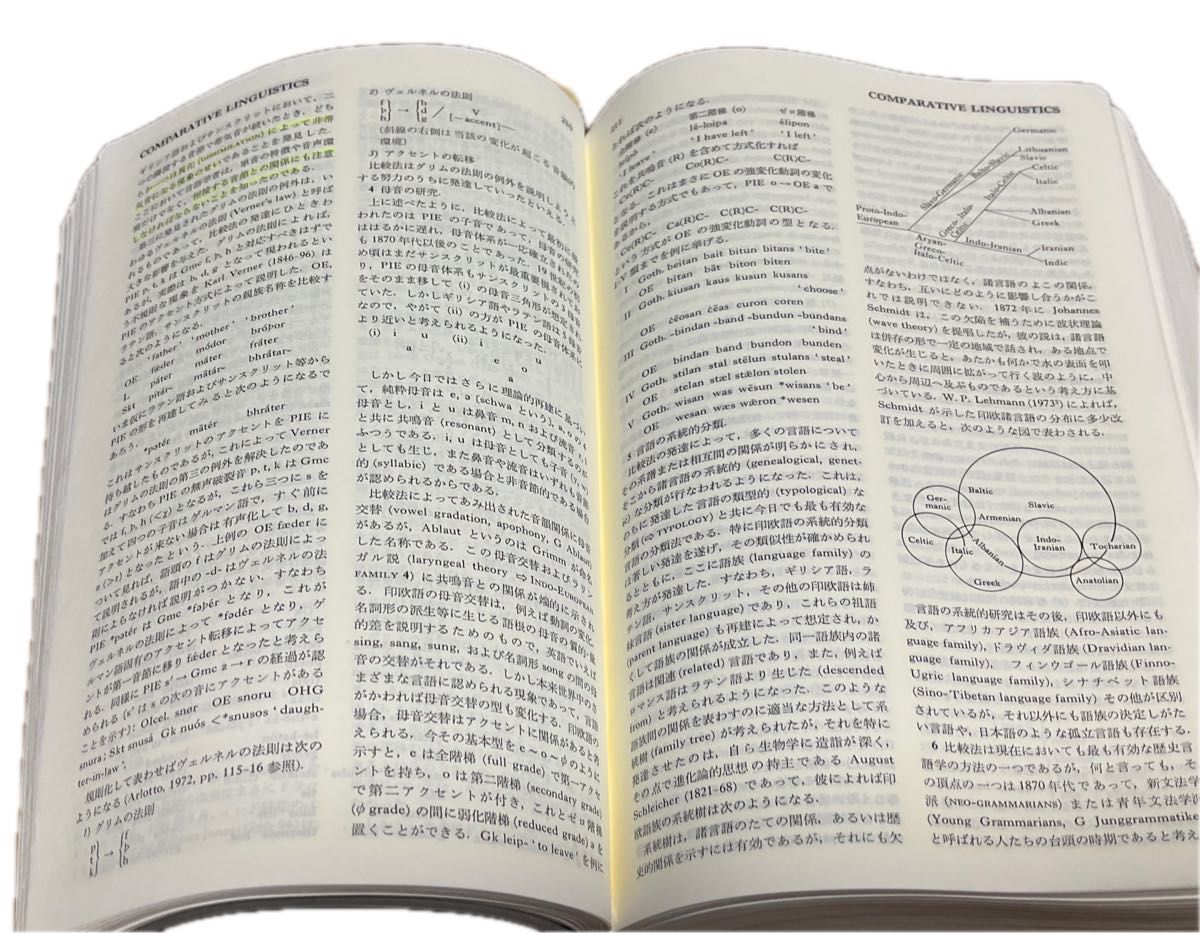 COMPARATIVE LINGUISTICS
リック語およびサンスクリットにおいて, 二
つ隣接する音節で帯気音が続いたとき, どち
らかは異化 (DISSIMILATION) によって非帯
気音になる現象のせいであることを発見した.
ここにおいて言語学者は, 単音の特徴や音声環
境だけでなく, 隣接する音節との関係にも注意
しなければならないことを知ったのである.
第三に発見されたグリムの法則の例外は, い
わゆるヴェルネルの法則 (Verner's law) と呼ば
れるものであって, 比較法の発達にひときわ
大きな影響を与えた. グリムの法則によれば,
PIE p, t, k は Gmc f, þ, h と対応すべきはずで
あるが, 実際は b, d, g となって現われるとい
う不規則な現象を Karl Verner (1846-96) は
PIE のアクセント方式によって説明した. OE,
ラテン語, サンスクリットの親族名称を比較す
ると次のようになる.
'father' 'mother' 'brother'
OE fæder mōdor brōþor
L pater māter frāter
Skt pitár- mātár- bhrā́tar-
いま仮にラテン語およびサンスクリット等から
PIE の形を再建してみると次のようになるで
あろう.
*patér mātér bhrā́ter
これはサンスクリットのアクセントを PIE に
持ち越したものであるが, これによって Verner
はグリムの法則の第三の例外を解決したのであ
る. すなわち PIE の無声破裂音 p, t, k は Gmc
では f, þ, h (<χ) となるが, これら三つに s を
加えて四つの子音はゲルマン語で, すぐ前に
アクセントが来ない場合は有声化して b, d, g,
z (>r) となったという. 上例の OE fæder に
ついて見れば, 語頭の f はグリムの法則によっ
て説明されるが, 語中の -d- はヴェルネルの法
則によらなければ説明がつかない. すなわち
PIE *patér は Gmc *faþér となり, これが
ヴェルネルの法則によって *fadér となり, ゲ
ルマン語固有のアクセント転移によってアクセ
ントが第一音節に移り féder となったと考えら
れる. 同様に PIE s'→Gmc z→r の経過が認
められる (s' は s の次の音にアクセントがある
ことを示す): OIcel. snør OE snoru OHG
snura; Skt snusá Gk nuós <*snusos 'daugh-
ter-in-law'.
規則化して表わせばヴェルネルの法則は次の
ようになる (Arlotto, 1972, pp. 115-16 参照).
1) グリムの法則
2) ヴェルネルの法則
V
[-accent]
(斜線の右側は当該の変化が起こる音韻的
環境)
3) アクセントの転移
比較法はグリムの法則の例外を説明しようと
する努力のうちに発達していったといえる.
4 母音の研究.
上に述べたように, 比較法によって最初に
われたのは PIE の子音であって, 母音の研究
ははるかに遅れ, 母音体系が一応確立されたの
も 1870 年代以後のことであった. 19 世紀の初
め頃はまだサンスクリットが最重要視されてお
り, PIE の母音体系もサンスクリットのそれ
をそのまま移して (i) の母音三角形が想定され
ていた. しかしギリシア語やラテン語は
なので, やがて (ii) の方が PIE の母音体系に
より近いと考えられるようになった.
(i) i u (ii) i u
a e o
a
しかし今日ではさらに理論的再建に基づい
て, 純粋母音は e, ə (schwa という), a, o の
母音とし, i と u は鼻音 m, n および流音 r, l
と共に共鳴音 (resonant) として分類するのが
ふつうである. i, u は母音としても子音 (y, w)
としても生じ, また鼻音や流音はいずれも音節
的 (syllabic) である場合と非音節的である場合
が認められるからである.
比較法によってあみ出された音韻関係に母音
交替 (vowel gradation, apophony, G Ablaut)
があるが, Ablaut というのは Grimm が命名
した名称である. この母音交替およびラリン
ガル説 (laryngeal theory ⇨ INDO-EUROPEAN
FAMILY 4) に共鳴音との関係が端的に示され
る. 印欧語の母音交替は, 例えば動詞の変化,
名詞形の派生等に生じる語根の母音の質的・量
的差を説明するためのもので, 英語でいえば
sing, sang, sung, および名詞形 song の間の母
音の交替がそれである. しかし本来世界中のさ
まざまな言語に認められる現象であって, 言語
がかわれば母音交替の型も変化する. 印欧語の
場合, 母音交替はアクセントに関係があると考
えられる. 今その基本型を e〜o〜φ のように
示すと, e は全階梯 (full grade) で第一アクセ
ントを持ち, o は第二階梯 (secondary grade)
で第二アクセントが付き, これとゼロ階梯
(φ grade) の間に弱化階梯 (reduced grade) ə を
置くことができる. Gk leip- 'to leave' を例に
COMPARATIVE LINGUISTICS
とれば次のようになる.
全階梯 (e) 第二階梯 (o) ゼロ階梯
leípo lé-loipa élipon
'I leave' 'I have left' 'I left'
これを共鳴音 (R) を含めて方式化すれば
Ce(R)C- Co(R)C- C(R)C-
となる. これはまさに OE の強変化動詞の変化
を説明する方式でもあって, PIE o→OE a で
あるから,
Ce(R)C- Ca(R)C- C(R)C- C(R)C-
という方式が OE の強変化動詞の型となる.
I Goth. beitan bait bitun bitans 'bite'
OE bītan bāt biton biten
II Goth. kiusan kaus kusun kusans
'choose'
OE cēosan cēas curon coren
III Goth. -bindan -band -bundun -bundans
'bind'
OE bindan band bundon bunden
IV Goth. stilan stal stēlun stulans 'steal'
OE stelan stæl stǣlon stolen
V Goth. wisan was wēsun *wisans 'be'
OE wesan wæs wǣron *wesen
5 言語の系統的分類.
比較法の発達によって, 多くの言語について
その系譜または相互間の関係が明らかにされ,
そこから諸言語の系統的 (genealogical, genet-
ic) な分類が行なわれるようになった. これは,
のちに発達した言語の類型的 (typological) な
分類 (⇨TYPOLOGY) と共に今日でも最も有効な
言語の分類法である. 特に印欧語の系統的分類
は著しい発達を遂げ, その類似性が確かめられ
るとともに, ここに語族 (language family) の
考え方が発達した. すなわち, ギリシア語, ラ
テン語, サンスクリット, その他の印欧語は姉
妹言語 (sister language) であり, これらの祖語
(parent language) も再建によって想定され, か
くして語族の関係が成立した. 同一語族内の諸
言語は関連 (related) 言語であり, また, 例えば
ロマンス語はラテン語より生じた (descended
from) と考えられるようになった. このような
語族間の関係を表わすのに適当な方法として系
統樹 (family tree) が考えられたが, それを特に
発達させたのは, 自ら生物学に造詣が深く,
その点で進化論的思想の持主である August
Schleicher (1821-68) であって, 彼によれば印
欧語族の系統樹は次のようになる.
系統樹は, 諸言語のたての関係, あるいは歴
史的関係を示すには有効であるが, それにも欠
Germanic
Lithuanian
Slavic
Celtic
Italic
Albanian
Greek
Iranian
Indic
Slavo-Germanic
Balto-Slavic
Italo-Celtic
Proto-Indo-
European
Aryan-
Greco-
Italo-Celtic
Greco-Italo-
Celtic
Indo-Iranian
点がないわけではなく, 諸言語のよこの関係,
すなわち, 互いにどのように影響し合うかがこ
れでは説明できない. 1872 年に Johannes
Schmidt は, この欠陥を補うために波状理論
(wave theory) を提唱したが, 彼の説は, 諸言語
は併存の形で一定の地域で話され, ある地点で
変化が生じると, あたかも何かで水の表面を叩
いたときに周囲に拡がって行く波のように, 中
心から周辺へ及ぶものであるという考え方に基
づいている. W. P. Lehmann (1973²) によれば,
Schmidt が示した印欧諸言語の分布に多少改
訂を加えると, 次のような図で表わされる.
Ger-
manic
Baltic
Slavic
Armenian
Celtic
Italic
Albanian
Greek
Indo-
Iranian
Tocharian
Anatolian
言語の系統的研究はその後, 印欧語以外にも
及び, アフリカアジア語族 (Afro-Asiatic lan-
guage family), ドラヴィダ語族 (Dravidian lan-
guage family), フィンウゴール語族 (Finno-
Ugric language family), シナチベット語族
(Sino-Tibetan language family) その他が区別
されているが, それ以外にも語族の決定しがた
い言語や, 日本語のような孤立言語も存在する.
6 比較法は現在においても最も有効な歴史言
語学の方法の一つであるが, 何と言っても, そ
の頂点の一つは 1870 年代であって, 新文法学
派 (NEO-GRAMMARIANS) または青年文法学派
(Young Grammarians, G Junggrammatike
と呼ばれる人たちの台頭の時期であると考え